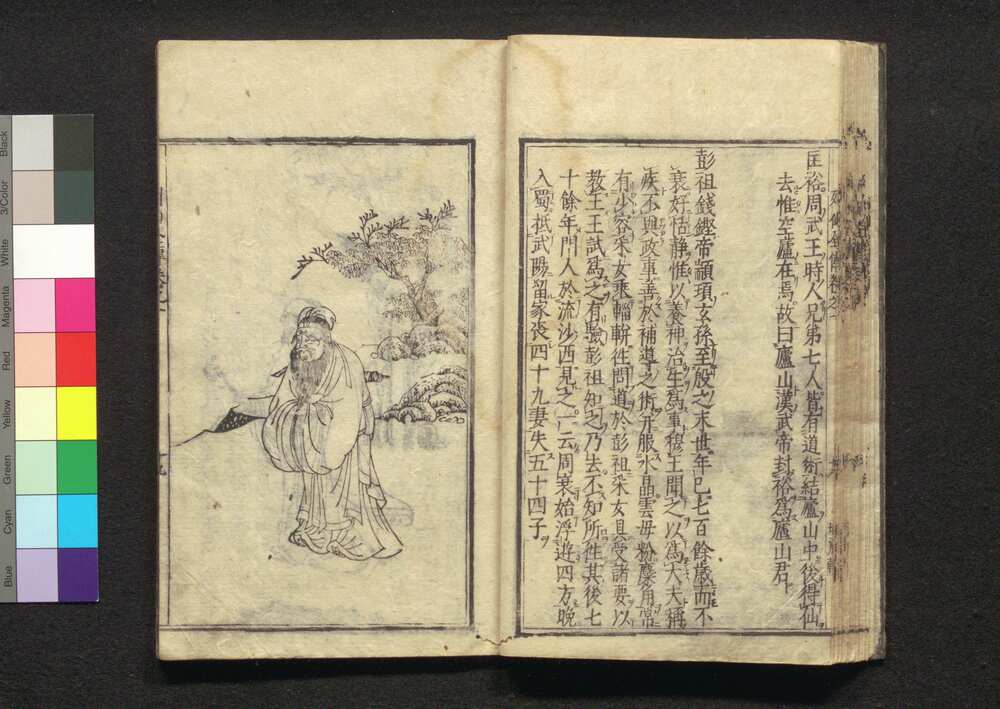 匡裕周武王時人兄弟七人皆有道術結廬山中後得仙
去惟空廬在焉故曰廬山漢武帝封裕為廬山君
彭祖錢鏗帝顓頊玄孫至殷之末世年已七百餘歲而不
衰好恬靜惟以養神治生為事穆王聞之以為大夫稱
疾不與政事善於補導之術并服水晶雲母粉麋角常
有少容采女乘輜軿往問道於彭祖采女具受諸要以
教王王試為之有驗彭祖知之乃去不知所往其後七
十餘年門人於流沙西見之一云周衰始浮遊四方晚
入蜀抵武陽留家喪四十九妻失五十四子
Black
3/Color
White
Magenta
Red
Yellow
Green
Cyan
Blue